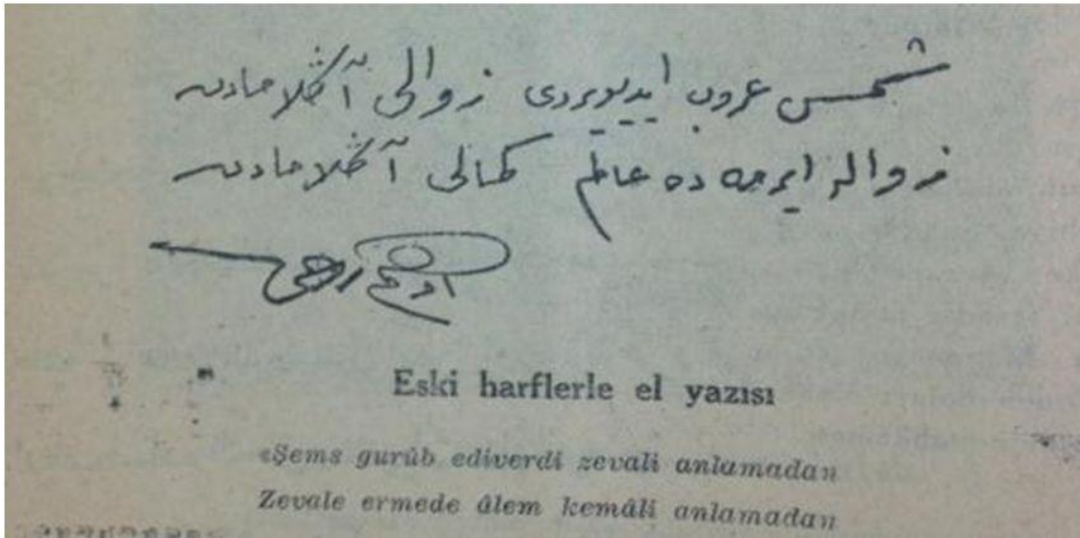 شمس غروب ایدیویردی زوالی آڭلامادن
زواله ایرمه ده عالم كمالی آڭلامادن
Eski harflerle el yazısı
«Şems gurûb ediverdi zevali anlamadan
Zevale ermede âlem kemâli anlamadan